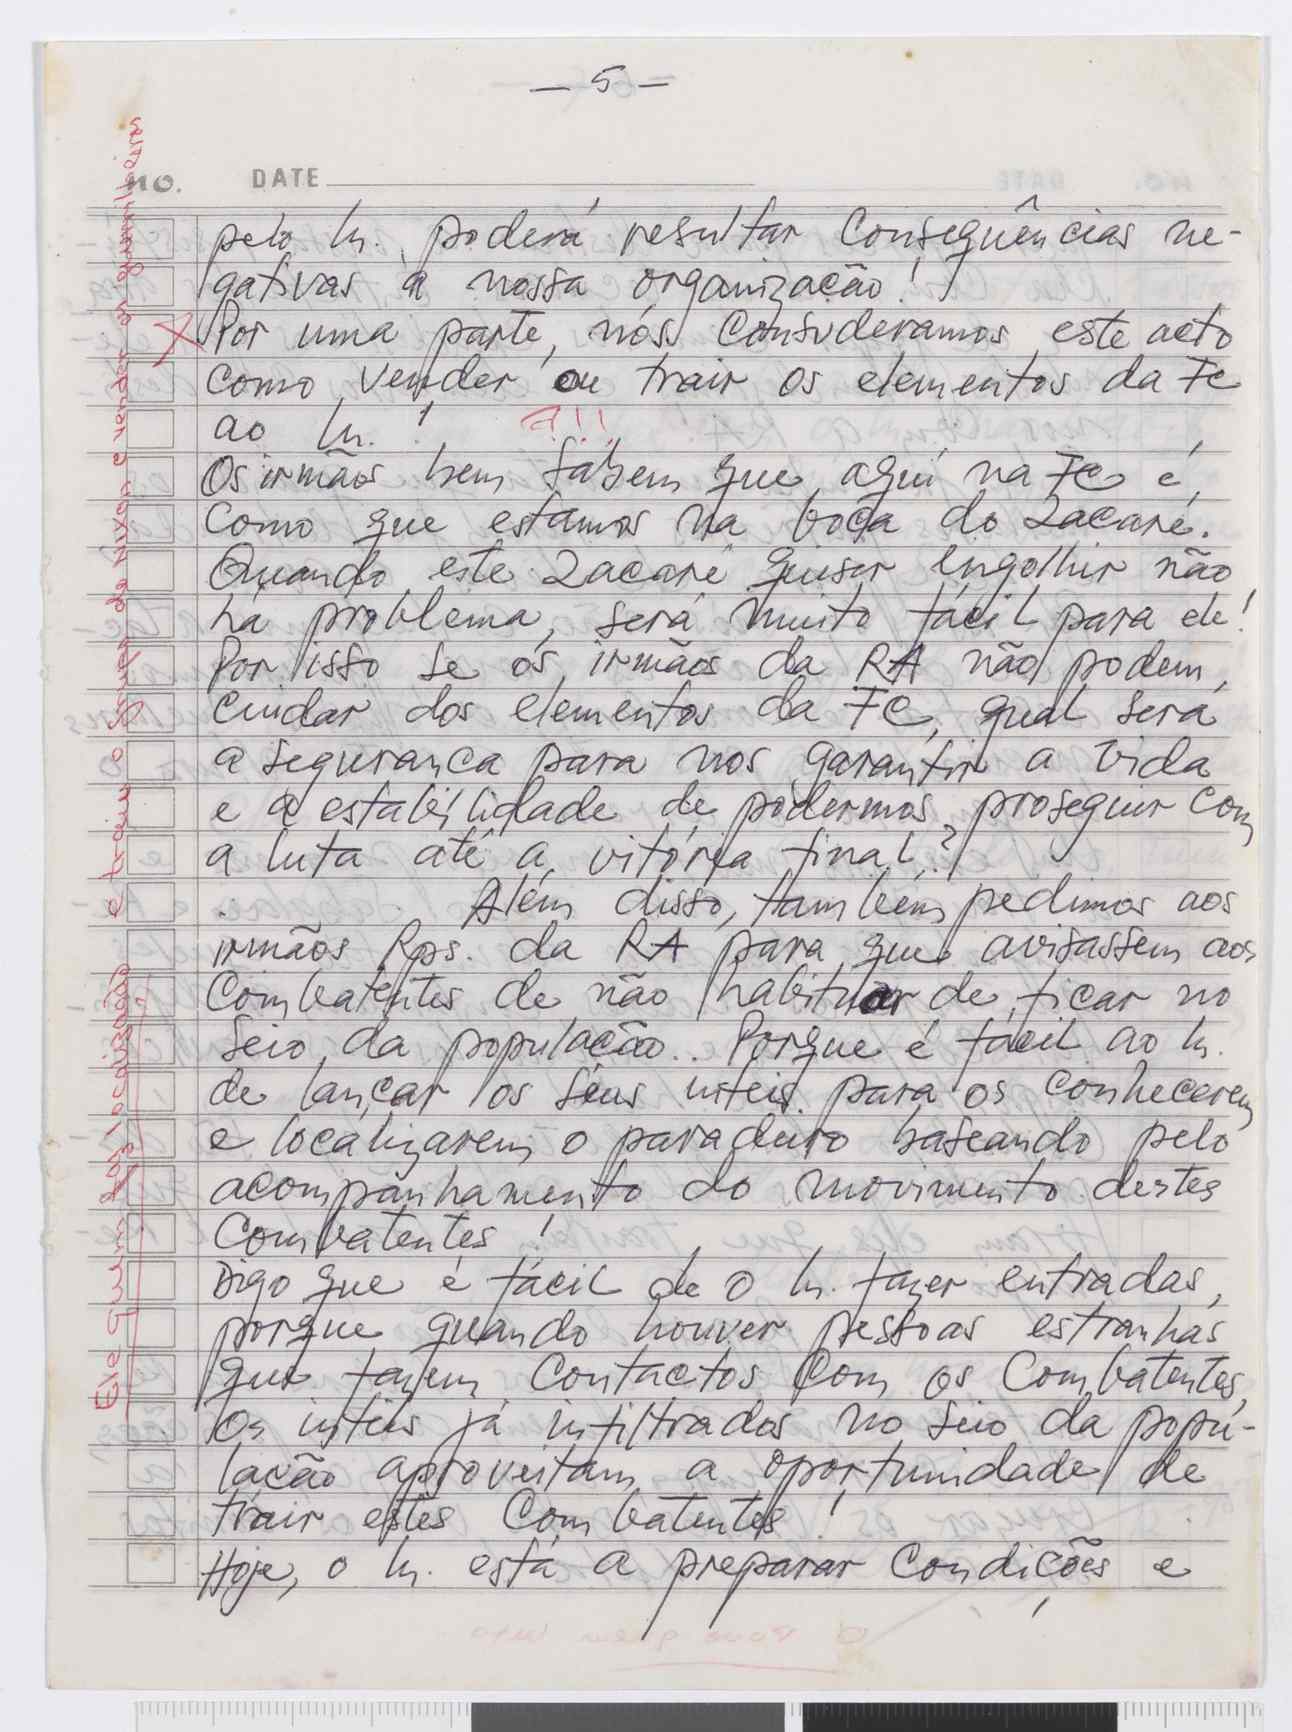 — 5 —
NO. DATE
pelo In. poderá resultar consequências ne-
gativas a nossa organização!
X Por uma parte, nós consuderamos este acto
como vender ou trair os elementos da FC
ao In.!
?!!
Os irmãos bem sabem que, aqui na FC é,
como que estamos na boca do Lacaré.
Quando este Lacaré quiser engolhir não
há problema, será muito fácil para ele!
Por isso se os irmãos da RA não podem,
cuidar dos elementos da FC, qual será
a segurança para nos garantir a vida
e a estabilidade de podermos proseguir com
a luta até a vitória final?
Além disso, também pedimos aos
irmãos Rps. da RA para que avisassem aos
combatentes de não habituar de ficar no
seio da população.. Porque é fácil ao In.
de lançar os seus inteis para os conhecerem
e localizarem o paradeiro baseando pelo
acompanhamento do movimento destes
combatentes!
Digo que é fácil de o In. fazer entradas,
porque quando houver pessoas estranhas
que fazem contactos com os combatentes,
os inteis já infiltrados no seio da popu-
lação aproveitam a oportunidade de
trair estes combatentes!
Hoje, o In. está a preparar condições e
e traiu o grupo de Nixon e vender os guerrilheiros
Ele quem faz localização